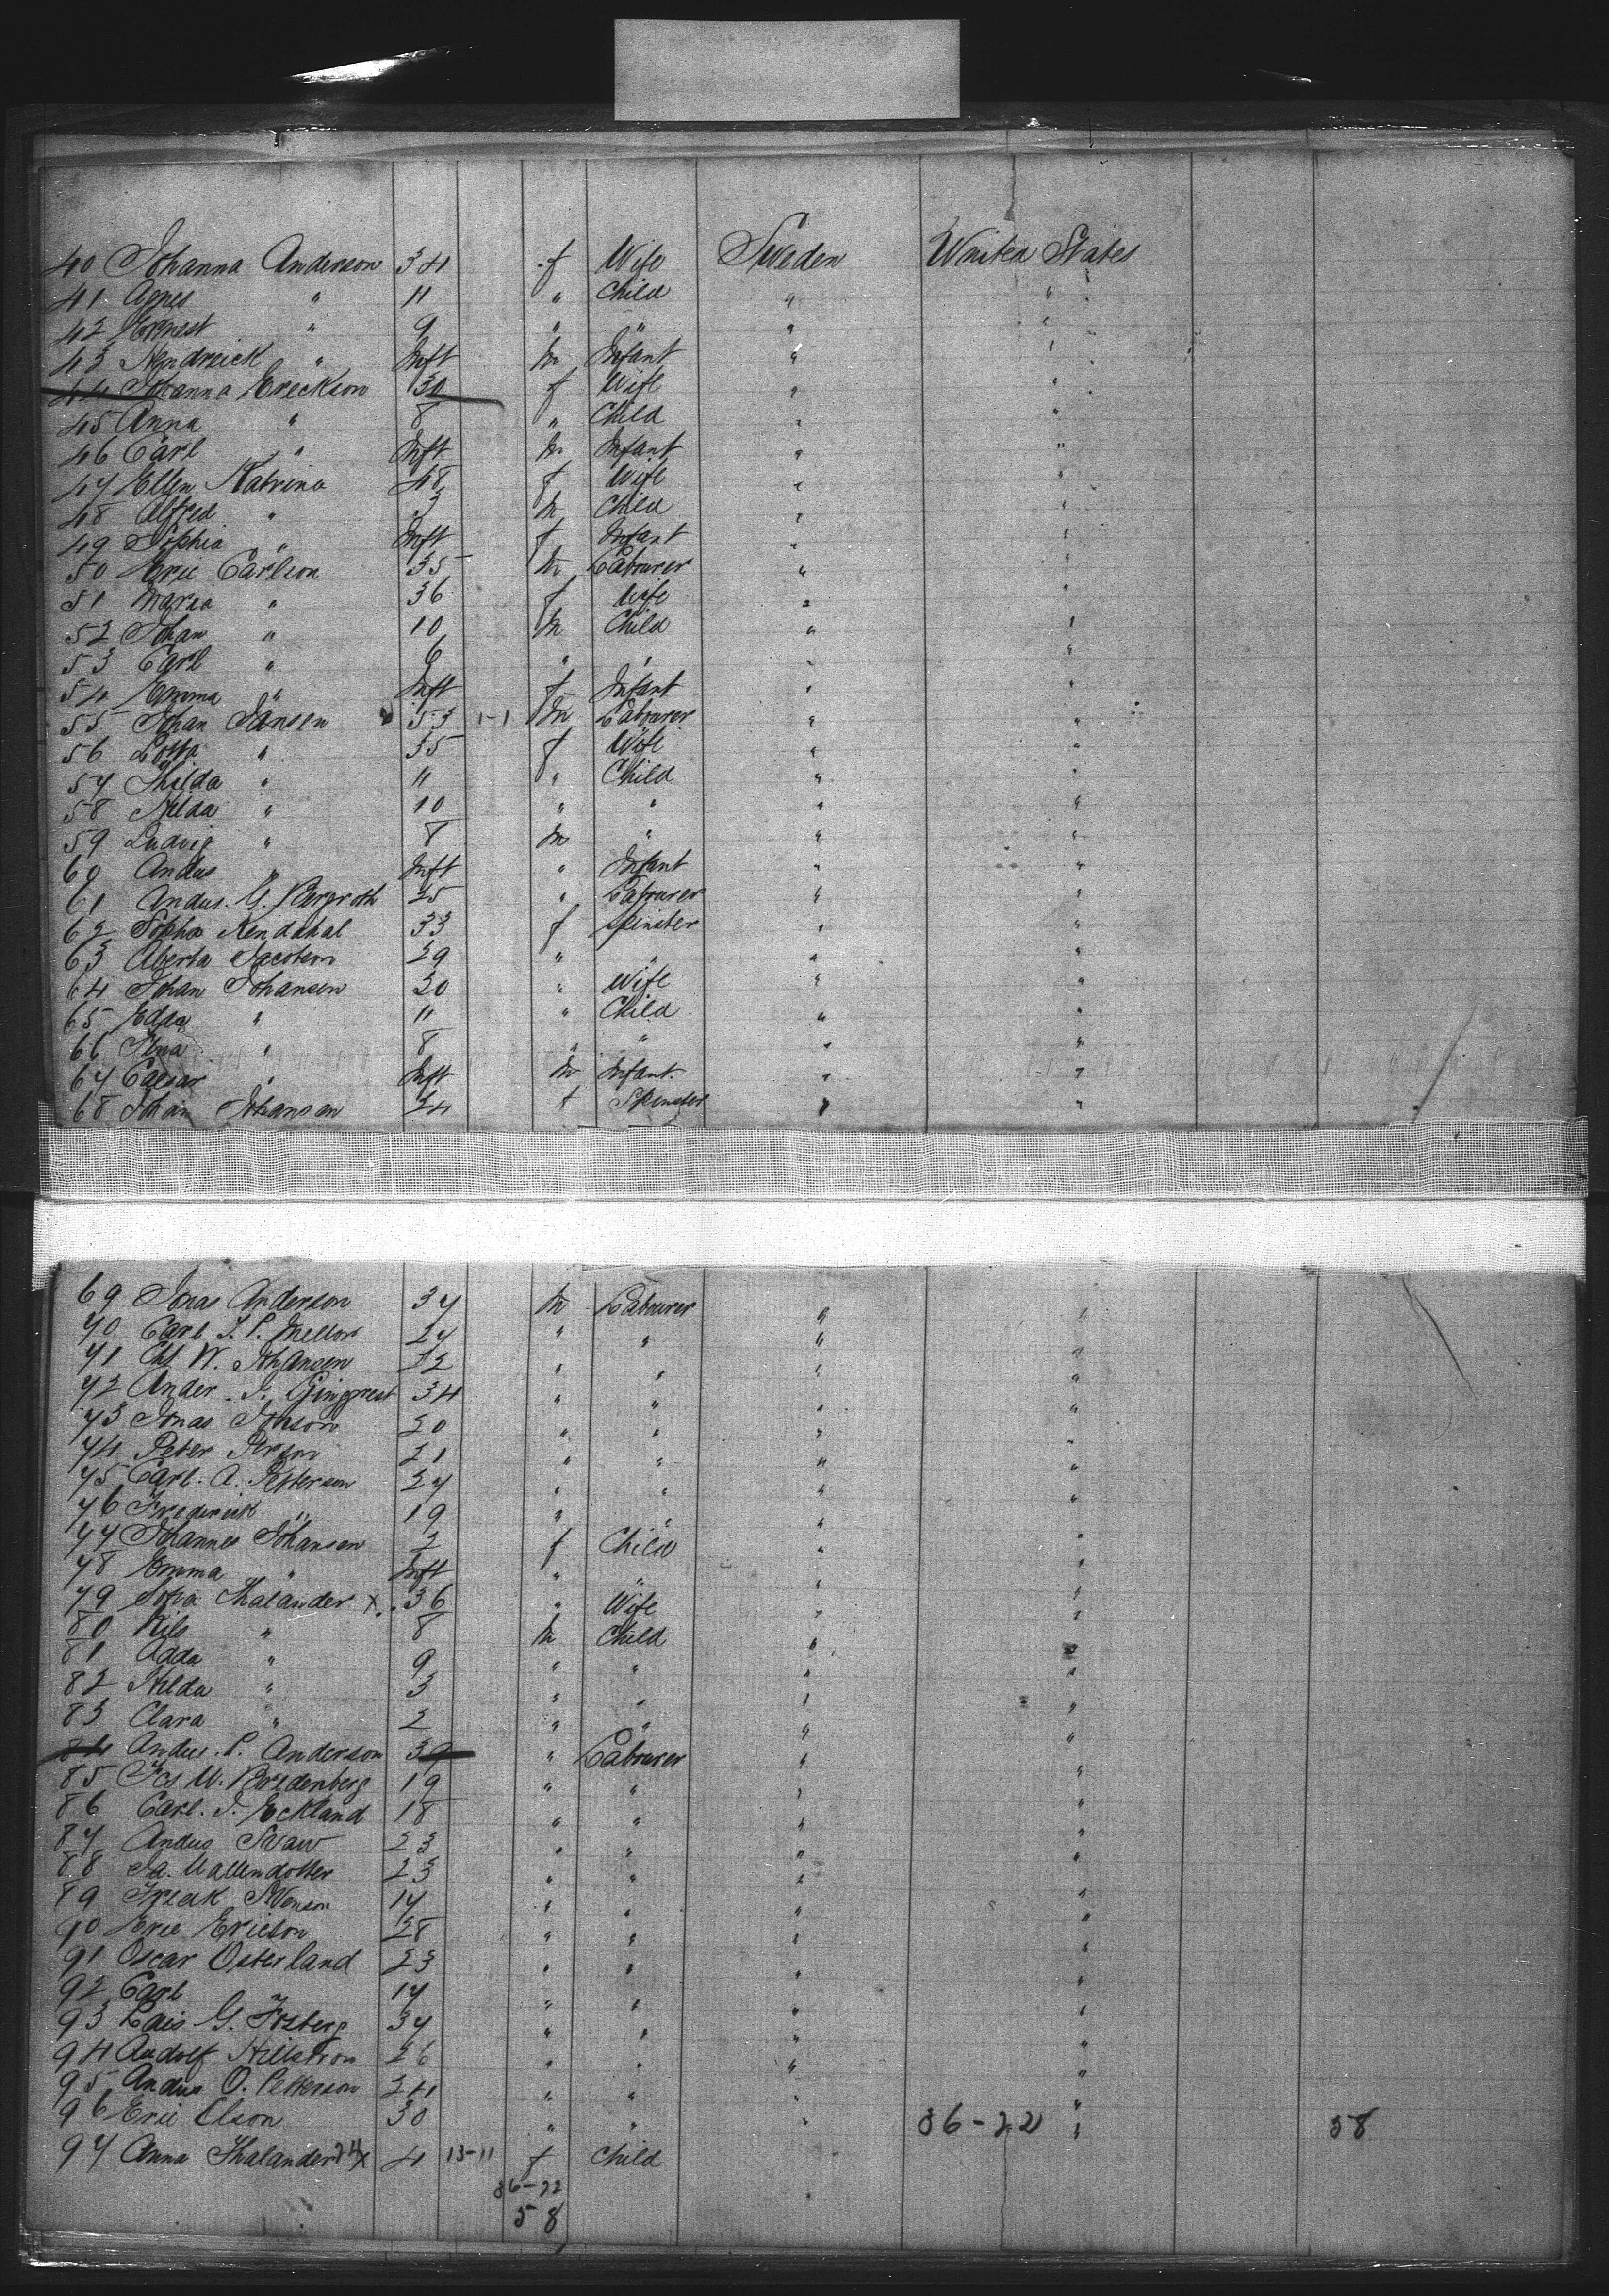 40 Johanna Anderson 34 f Wife Sweden United States
41 Agnes " 11 " Child " "
42 Ernest " 9 " " " "
43 Hendreick " Inft m Infant " "
44 Johanna Ereckson 30 f Wife " "
45 Anna " 8 " Child " "
46 Carl " Inft m Infant " "
47 Ellen Katrina 48 f Wife " "
48 Alfred " 3 m Child " "
49 Sophia " Inft f Infant " "
50 Eric Carlson 35 m Labourer " "
51 Maria " 36 f Wife " "
52 Johan " 10 m Child " "
53 Carl " 6 " " " "
54 Emma " Inft f Infant " "
55 Johan Jansen 53 1-1 m Labourer " "
56 Lotta " 35 f Wife " "
57 Thilda " 11 " Child " "
58 Hilda " 10 " " " "
59 Ludvig " 8 m " " "
60 Andus " Inft " Infant " "
61 Andus. G. Bergroth 25 " Labourer " "
62 Sopha Kendahal 33 f Spinster " "
63 Alberta Jacobson 29 " " " "
64 Johan Johansen 30 " Wife " "
65 Edda " 11 " Child " "
66 " 8 " " " "
67 Caesar " Inft m Infant " "
68 Johan Johansan 24 f Spinster " "
69 Jonas Anderson 37 m Labourer " "
70 Carl J. P. Mellor 27 " " " "
71 Chs W. Johansen 32 " " " "
72 Ander. J. 34 " " " "
73 Jonas Jonson 20 " " " "
74 Peter Person 21 " " " "
75 Carl. A. Petterson 27 " " " "
76 Frederick " 19 " " " "
77 Johannes Johansen 2 f Child " "
78 Emma " Inft " " " "
79 Sofia Thalander X 36 " Wife " "
80 Nils " 8 m Child " "
81 Adda " 9 " " " "
82 Hilda " 3 " " " "
83 Clara " 2 " " " "
84 Andus. P. Anderson 39 " Labourer " "
85 W. Bredenberg 19 " " " "
86 Carl. J. Eckland 18 " " " "
87 Andus Swaw 23 " " " "
88 Ja. Wallendotter 23 " " " "
89 Freak Swenson 17 " " " "
90 Eric Ericson 28 " " " "
91 Oscar Osterland 23 " " " "
92 Carl 17 " " " "
93 Lais G. Fosberg 37 " " " "
94 Audolf Hillstron 26 " " " "
95 Andus O. Petterson 24 " " " "
96 Eric Olson 30 " " " 36-22 " 58
97 Anna Thalander 24 X 4 13-11 f Child
36-22
58